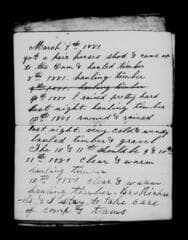 March 7th, 1881
got a pair horses shod & came up
to the Dam & hauled timber
8th 1881. hauling timber
9th 1881. hauling timber
9th 1881 & rained pretty hard
last night. hauling timber
10th 1881 snowed & rained
last night. very cold & windy
hauled timber & gravel
The 10 & 11 should be 9 & 10
11th 1881 Clear & warm
hauling timber
12th 1881 clear & warm
hauling timber. Bro Riches
& I stay to take care
of camp & teams